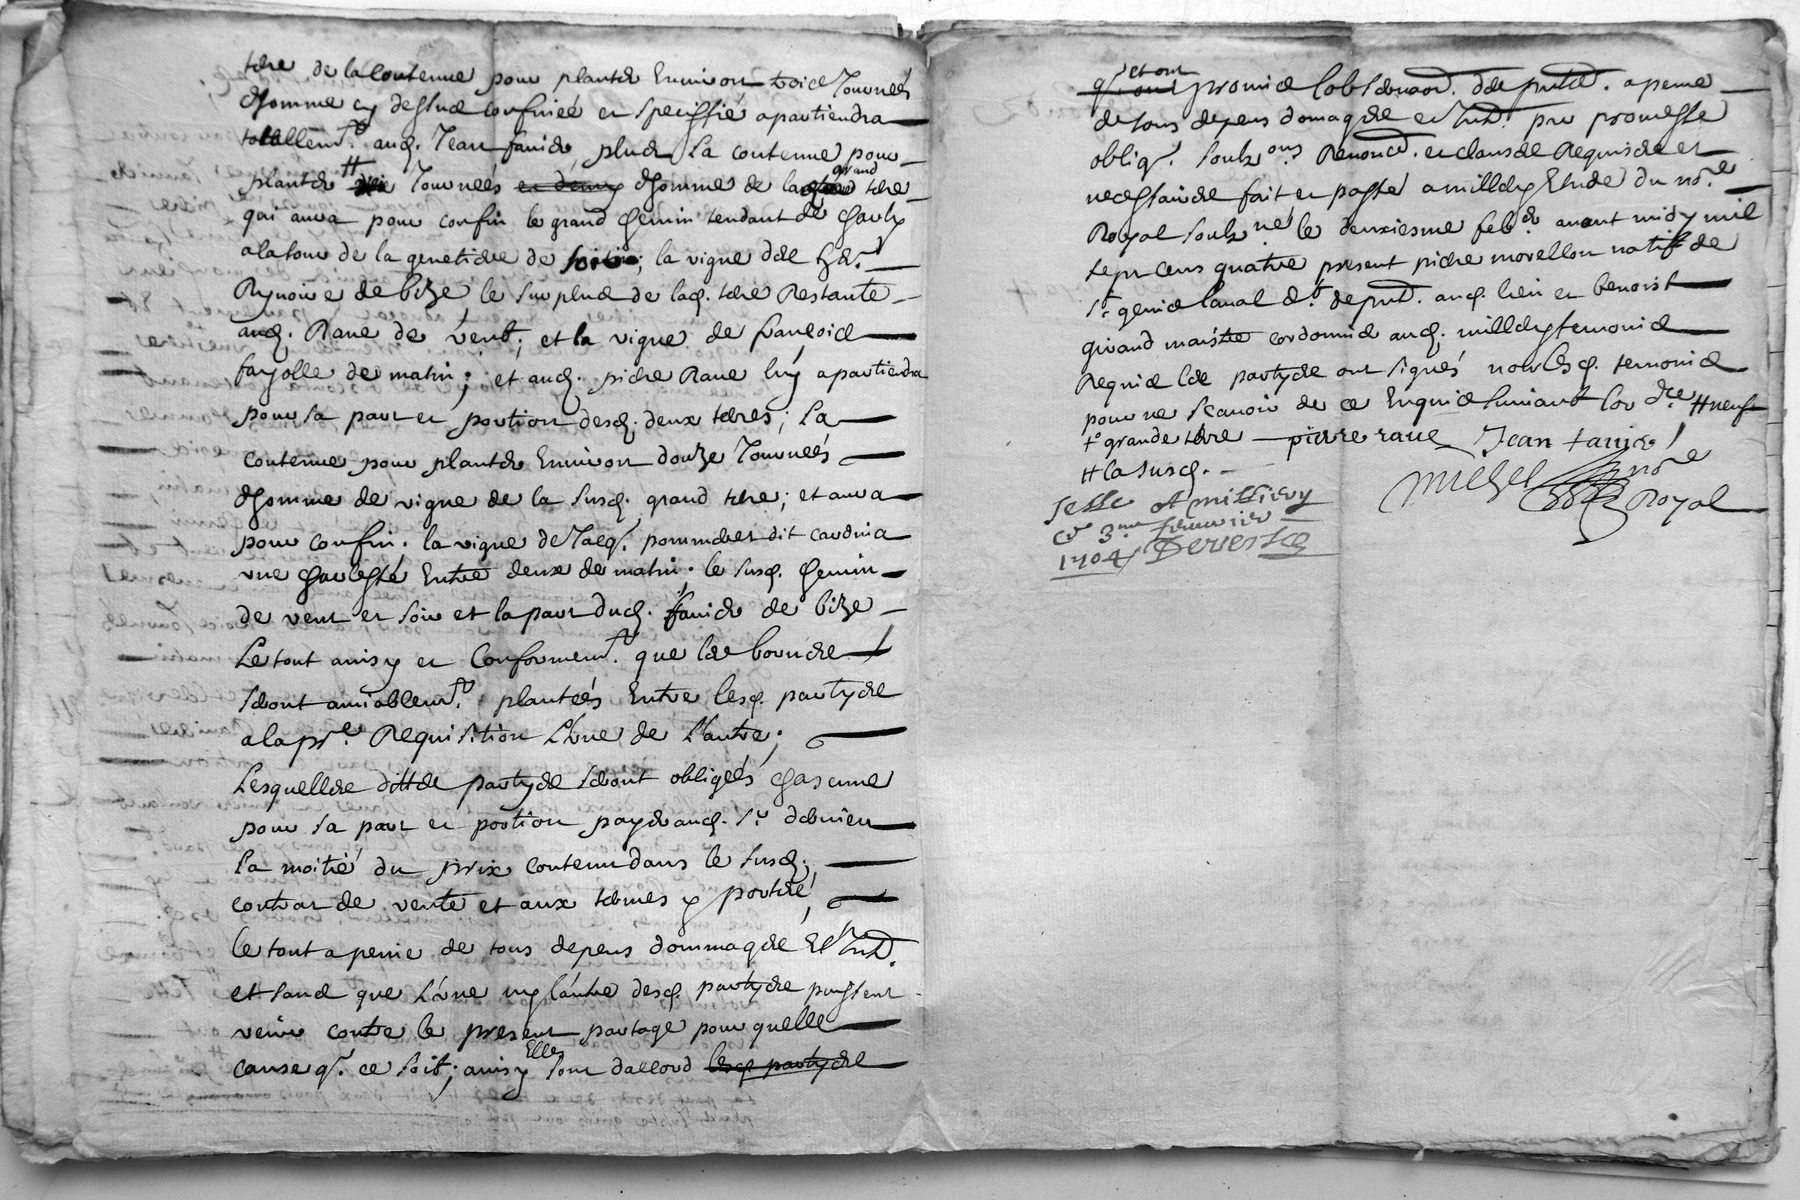 terre de la contenue pour planter Environ treize Journeés
dhomme cy dessus confineé et speciffié apartiendra
totallem.t aud. Jean fanier, plus La contenue pour
planter # Journeés en demy dhomme de la grand terre
qui aura pour confin le grand chemin tendant de charly
a la tour de la genetiere de soir; la vigne des her.
Reynoire de bize le surplus de lad. terre Restante
aud. Rave de vent; et la vigne de francois
fayolle de matin; et aud. pierre Rave luy apartiendra
pour sa part et portion desd. deux terres; La
contenue pour planter Environ douze Journeés
dhomme de vigne de la susd. grand terre; et aura
pour confin. la vigne de Jacq. pommeret dit
vne Entre deux de matin; le susd. chemin
de vent et soir et la part dud. fanier de bize
Le tout ainsy et Conformem.t que les bornes
seront amiablem.t plantées Entre lesd. partyes
a la pr.e Requisition L'vne de L'autre;
Lesquelles dittes partyes seront obligeés chascune
pour sa part et portion payer aud. S.r
La moitié du prix contenu dans le susd.
contrat de vente et aux termes y portés,
le tout a peine de tous depens dommages Et Int.
et sans que L'vne ny l'autre desd. partyes puissent
venir contre le present partage pour quelle
cause q. ce soit; ainsy Elles sont daccord lesd. partyes
q. et ont promis lobserver. des pntes. a peine
de tous depens domages et Int. par promesse
oblig. soubz.ons Renonc. et clauses Requises et
necessaires fait et passé a millery Etude du no.re
Royal soubz.né le deuxiesme feb.er avant midy mil
sept cens quatre present pierre morellon natif de
S.t genis laval d.t de pnt. aud. lieu et benoist
girand maistre cordonnier aud. millery temoins
Requis les partyes ont signés non lesd. temoins
pour ne scavoir de ce Enquis suivant lor.dre # neuf
+ grande terre — pierre rave Jean fanier
# la susd. —
michel no.re Royal
sellé A milliery
ce 3.me feuvrier
1704